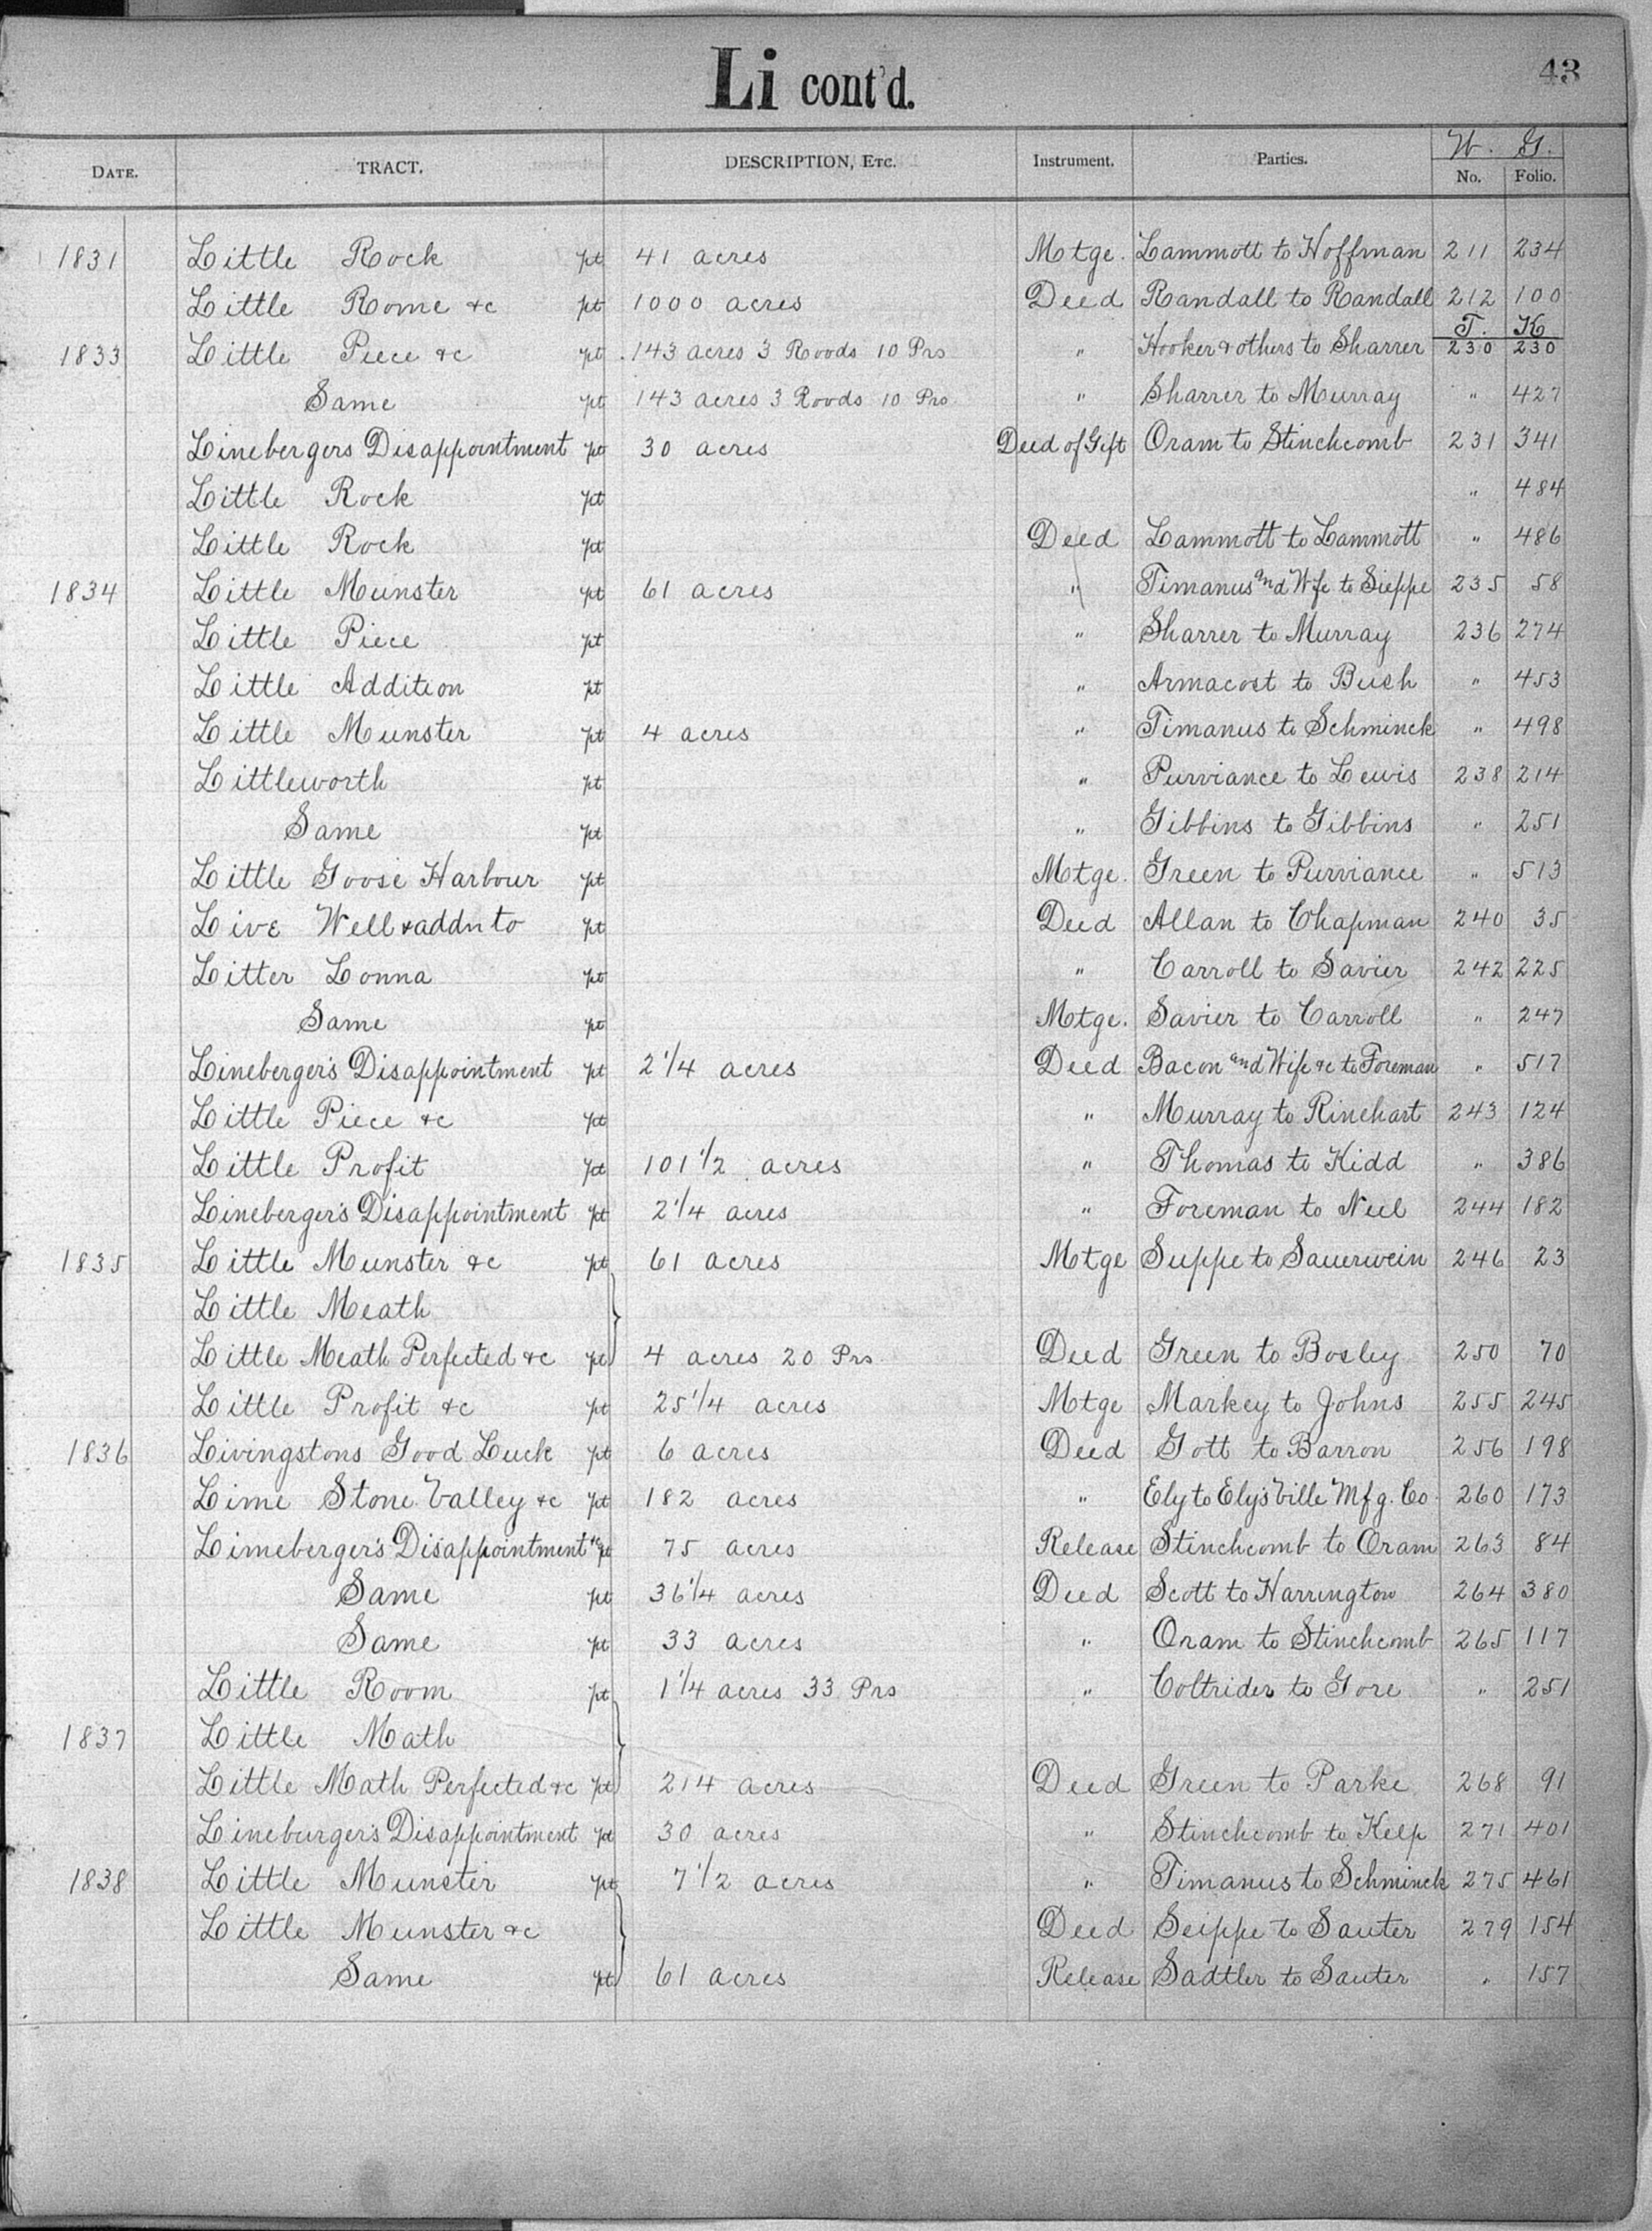 43
Li cont'd.
W. G.
DATE. TRACT. DESCRIPTION, ETC. Instrument. Parties. No. Folio.
1831 Little Rock pt 41 acres Motge. Lammott to Hoffman 211 234
Little Rome &c pt 1000 acres Deed Randall to Randall 212 100
T. K
1833 Little Piece &c pt 143 acres 3 Roods 10 Prs " Hooker & others to Sharrer 230 230
Same pt 143 acres 3 Roods 10 Prs " Sharrer to Murray " 427
Linebergers Disappointment pt 30 acres Deed of Gift Oram to Stinchcomb 231 341
Little Rock pt " 484
Little Rock pt Deed Lammott to Lammott " 486
1834 Little Munster pt 61 acres " Timanus and Wife to Sieppe 235 58
Little Piece pt " Sharrer to Murray 236 274
Little Addition pt " Armacost to Bush " 453
Little Munster pt 4 acres " Timanus to Schminck " 498
Littleworth pt " Purviance to Lewis 238 214
Same pt " Gibbins to Gibbins " 251
Little Goose Harbour pt Motge. Green to Purviance " 513
Live Well & addn to pt Deed Allan to Chapman 240 35
Litter Lonna pt " Carroll to Savier 242 225
Same pt Motge. Savier to Carroll " 247
Lineberger's Disappointment pt 2 1/4 acres Deed Bacon and Wife &c to Foreman " 517
Little Piece &c pt " Murray to Rinehart 243 124
Little Profit pt 101 1/2 acres " Thomas to Kidd " 386
Lineberger's Disappointment pt 2 1/4 acres " Foreman to Neel 244 182
1835 Little Munster &c pt 61 acres Motge Suppe to Sauerwein 246 23
Little Meath
Little Meath Perfected &c pt 4 acres 20 Prs. Deed Green to Bosley 250 70
Little Profit &c pt 25 1/4 acres Motge Markey to Johns 255 245
1836 Livingstons Good Luck pt 6 acres Deed Gott to Barron 256 198
Lime Stone Valley &c pt 182 acres " Ely to Ely's Ville Mfg. Co. 260 173
Limeberger's Disappointment &c pt 75 acres Release Stinchcomb to Oram 263 84
Same pt 36 1/4 acres Deed Scott to Harrington 264 380
Same pt 33 acres " Oram to Stinchcomb 265 117
Little Room pt 1 1/4 acres 33 Prs " Coltrider to Gore " 251
1837 Little Math
Little Math Perfected &c pt 214 acres Deed Green to Parke 268 91
Lineburger's Disappointment pt 30 acres " Stinchcomb to Kelp 271 401
1838 Little Munster pt 7 1/2 acres " Timanus to Schminck 275 461
Little Munster &c Deed Seippe to Sauter 279 154
Same pt 61 acres Release Sadtler to Sauter " 157